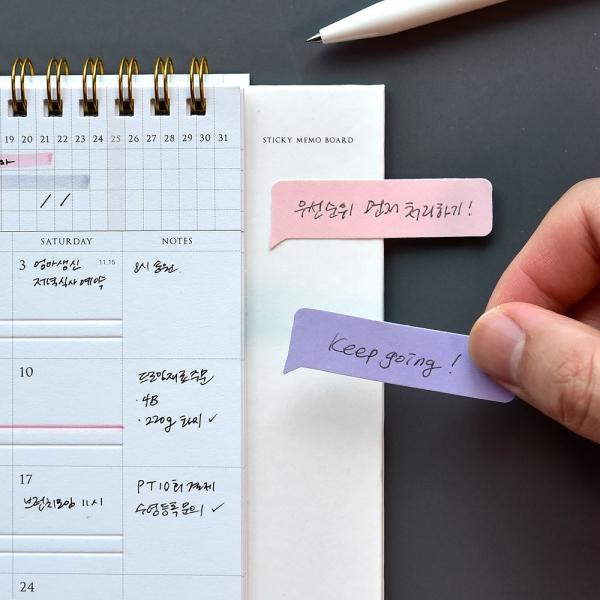 19 20 21 22 23 24 25 26 27 28 29 30 31
STICKY MEMO BOARD
우선순위 먼저 처리하기!
SATURDAY NOTES
3 엄마생신 11.15
저녁식사 예약
8시
Keep going!
10
드로잉재료주문
· 4B
· 220g 화지 ✓
17
브런치모임 11시
PT10회 결제
수영등록문의 ✓
24